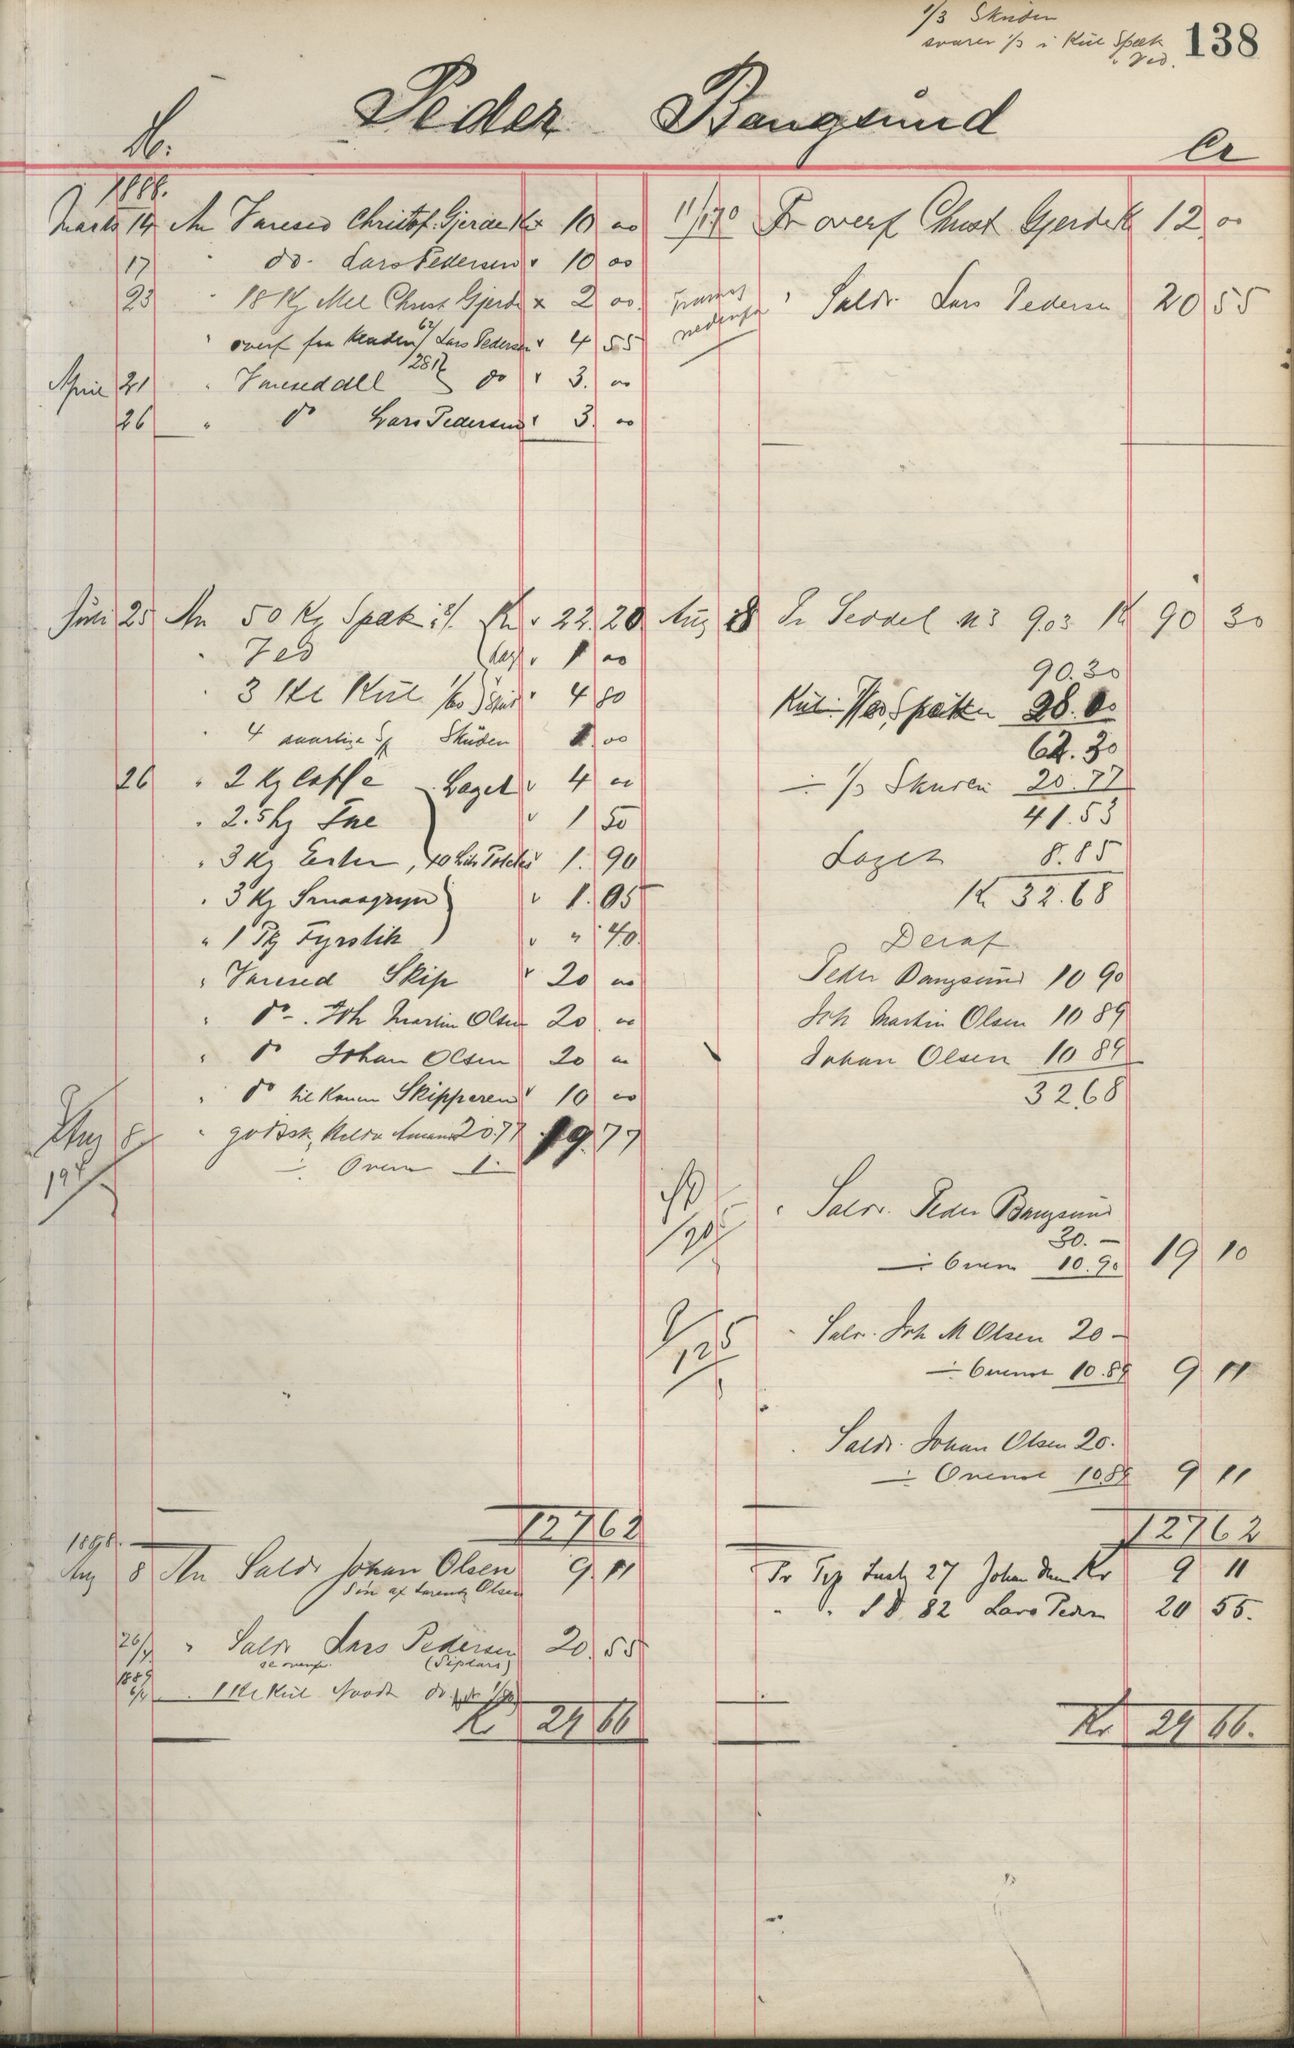 1/3 Skuden
svarer 1/3 i Kul Spæk
" Ved.
138
Peder Bangsund
D.
Cr
1888.
Marts 14 An Varesed Christof. Gjerde Kr x 10 00
17 " do. Lars Pedersen v 10 00
23 " 18 Kg Mel Christ Gjerde x 2 00
" overf fra Kladden 62/ Lars Pedersen v 4 55
April 21 " Vareseddel 281 do v 3. 00
26 " do Lars Pedersen v 3. 00
11/170 Pr overf Christ Gjerde K 12 00
" Saldo Lars Pedersen 20 55
Juli 25 An 50 Kg Spæk Kr v 22. 20
" Ved v 1 00
" 3 Hl Kul v 4 80
" 4 Skuden 1. 00
26 " 2 Kg Caffe Laget v 4 00
" 2.5 hg v 1 50
" 3 Kg Erter v 1. 90
" 3 Kg Smaagryn v 1. 05
" 1 Pk Fyrstik v " 40
" Varesed Skip v 20 00
" do Joh Martin Olsen 20 00
" do Johan Olsen 20 00
" do til Konen Skipperen v 10 00
Aug 8 " 20.77 19. 77
194
÷ Oven 1.
Aug 8 Pr Seddel No 903 K 90 30
90.30
Kul Ved, Spæk 28.00
62.30
÷ 1/3 Skuden 20.77
41.53
Laget 8.85
Kr 32.68
Deraf
Peder Bangsund 10 90
Joh Martin Olsen 10 89
Johan Olsen 10 89
32.68
" Saldo. Peder Bangsund
30.—
÷ Oven 10.90 19 10
" Saldo. Joh M Olsen 20 —
125
÷ Ovenst 10.89 9 11
" Saldo. Johan Olsen 20.
÷ Ovenst 10.89 9 11
127 62
127 62
1888.
Aug 8 An Saldo Johan Olsen 9. 11
Søn af Lorentz Olsen
26/4 " Saldo Lars Pedersen 20. 55
se ovenf.
1889
6/4 1 Hl Kul do
Kr 29 66
Pr 27 Johan Kr 9 11
" " 82 Lars Peder 20 55.
Kr 29 66.